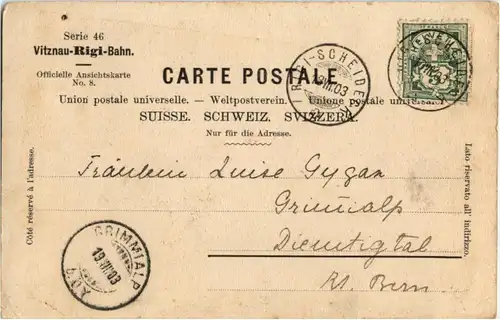 Serie 46
Vitznau-Rigi-Bahn.
Officielle Ansichtskarte
No. 8.
CARTE POSTALE
Union postale universelle. — Weltpostverein. — Unione postale universale.
SUISSE. SCHWEIZ. SVIZZERA.
Nur für die Adresse.
RIGI-SCHEIDEGG
VIII.03
Côté réservé à l'adresse.
Lato riservato all' indirizzo.
Fräulein Luise Gygax
Grimmialp
Diemtigtal
Kt. Bern.
GRIMMIALP
19.VIII.03